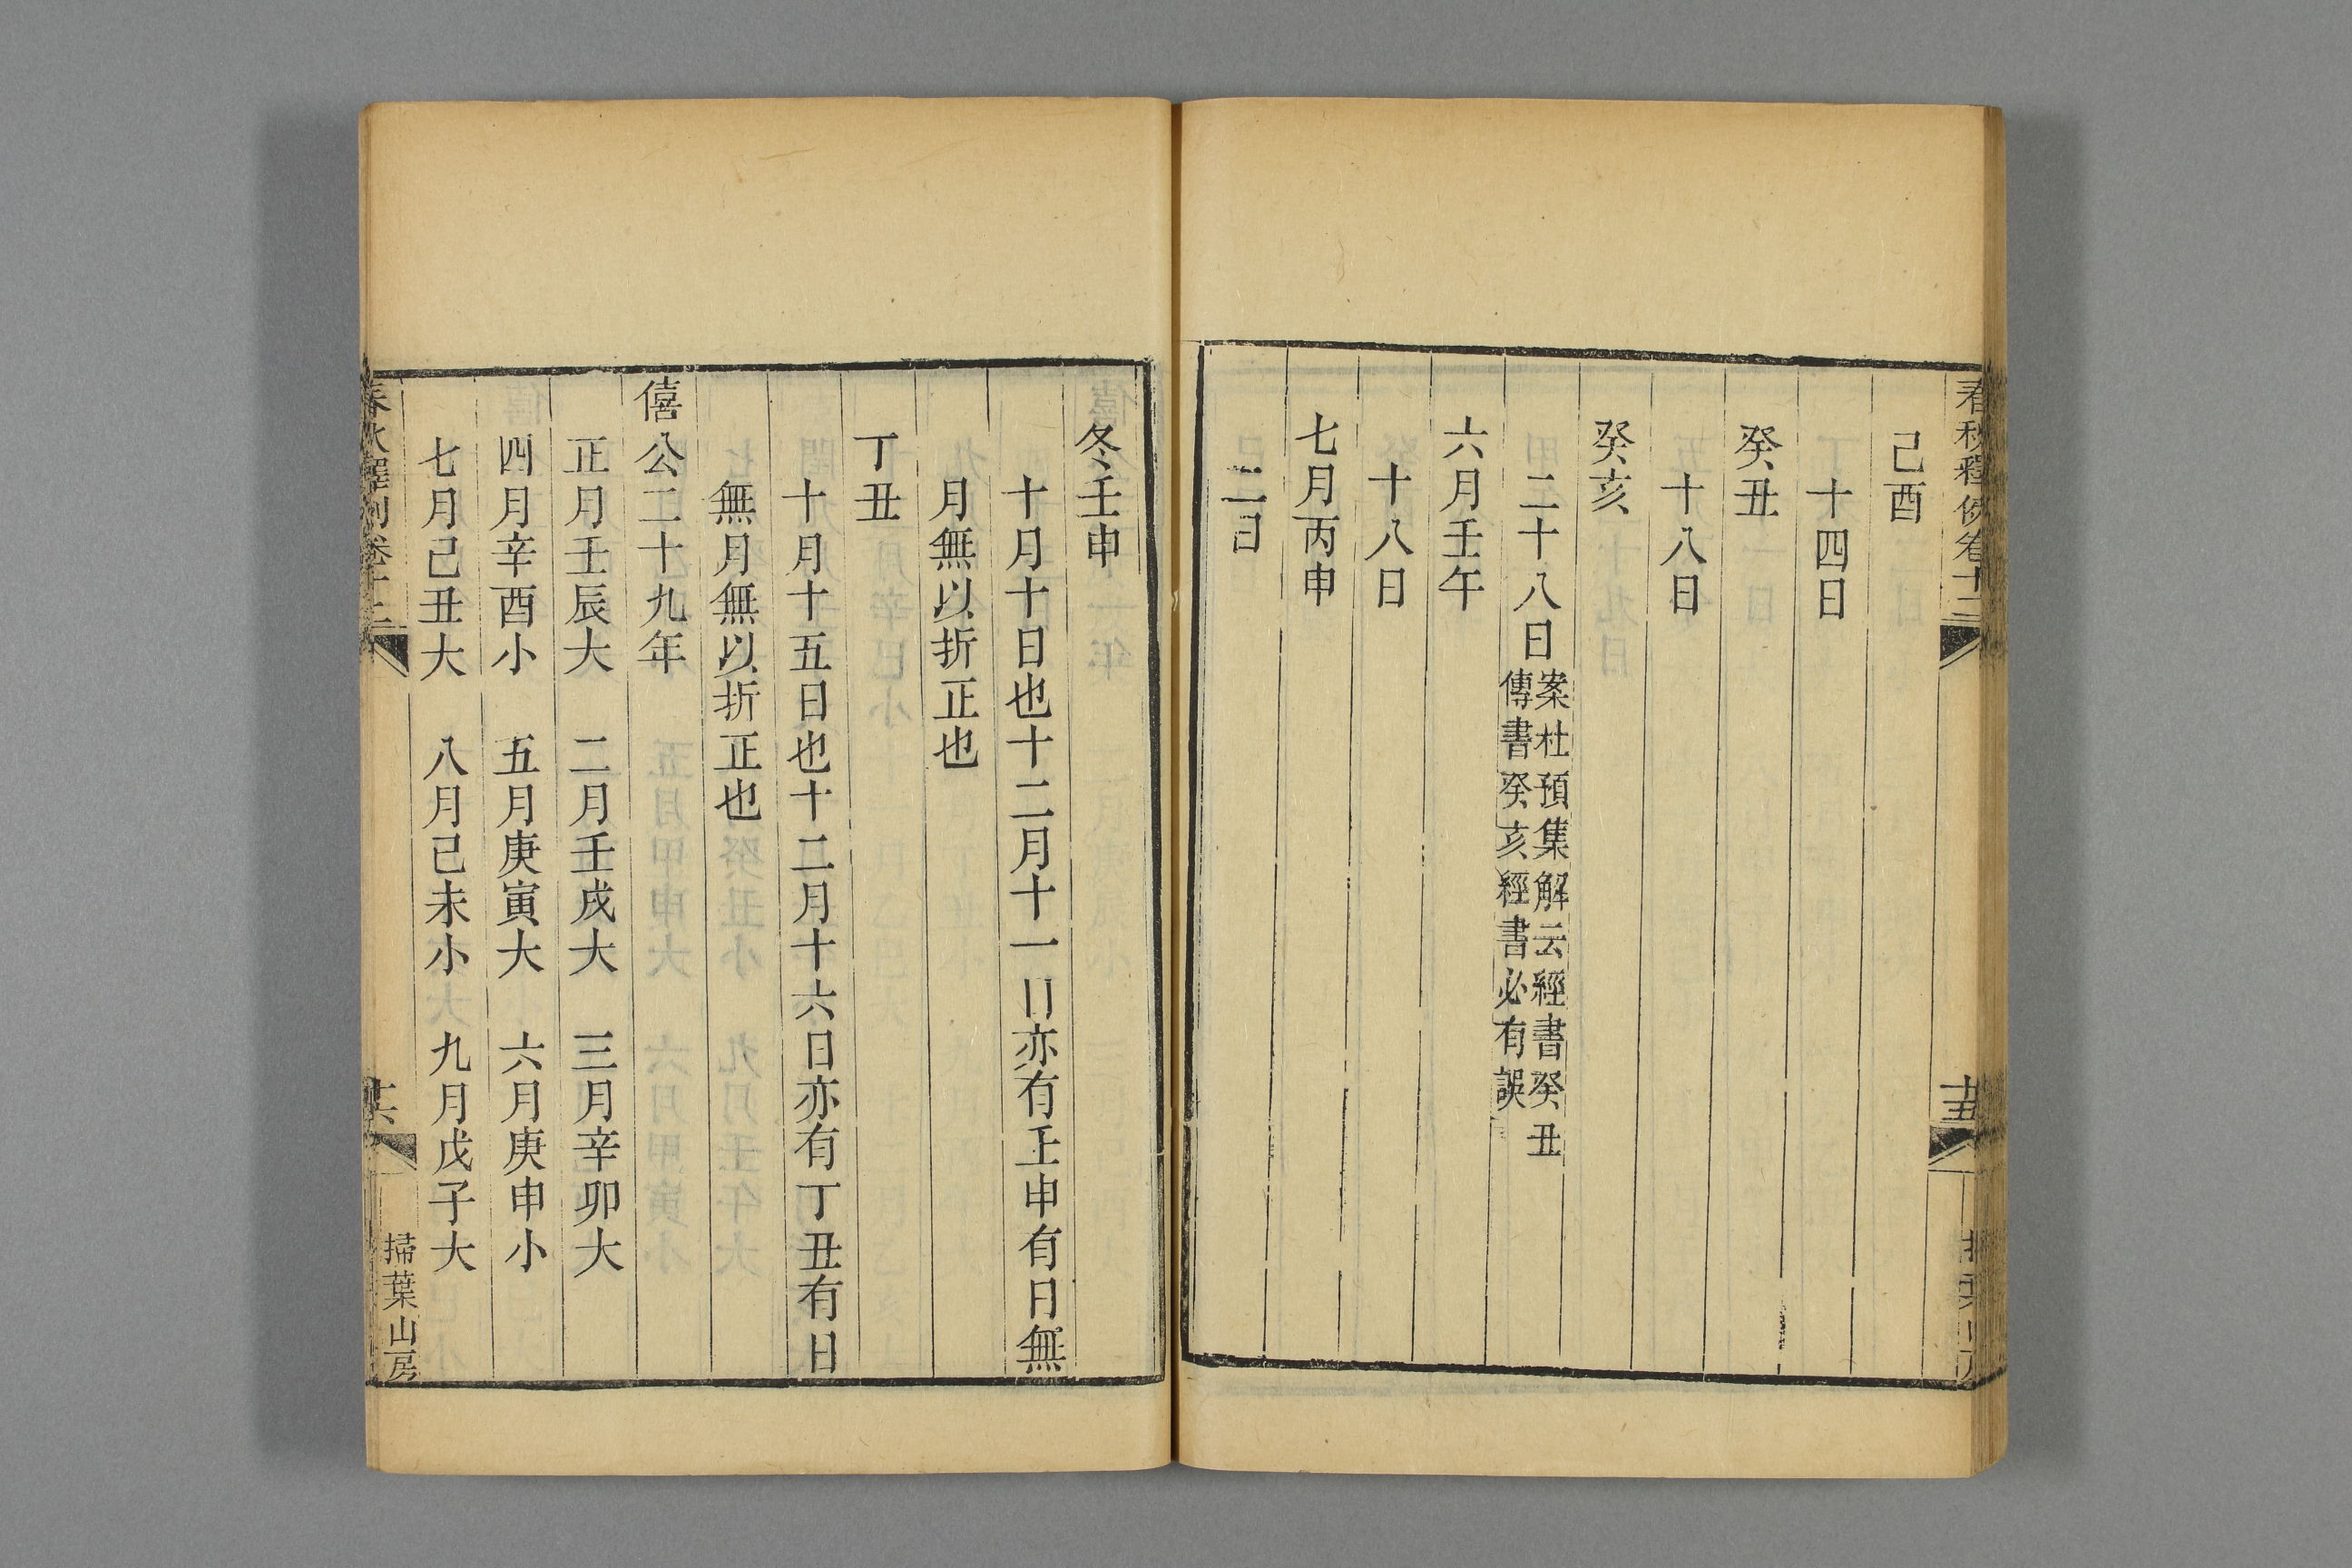 春秋釋例卷十二
十五
己酉
十四日
癸丑
十八日
癸亥
二十八日案杜預集解云經書癸丑
傳書癸亥經書必有誤
六月壬午
十八日
七月丙申
二日
冬壬申
十月十日也十二月十一日亦有壬申有日無
月無以折正也
丁丑
十月十五日也十二月十六日亦有丁丑有日
無月無以折正也
僖公二十九年
正月壬辰大 二月壬戌大 三月辛卯大
四月辛酉小 五月庚寅大 六月庚申小
七月己丑大 八月己未小 九月戊子大
春秋釋例卷十二
十六
掃葉山房